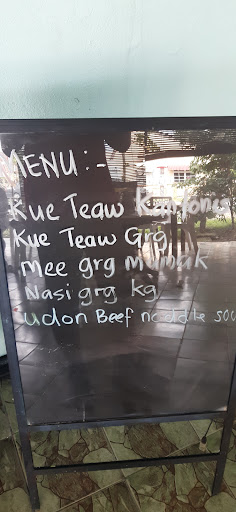 MENU:-
Kue Teaw Kantones
Kue Teaw Grg
Mee grg mamak
Nasi grg kg
udon Beef noddle sou